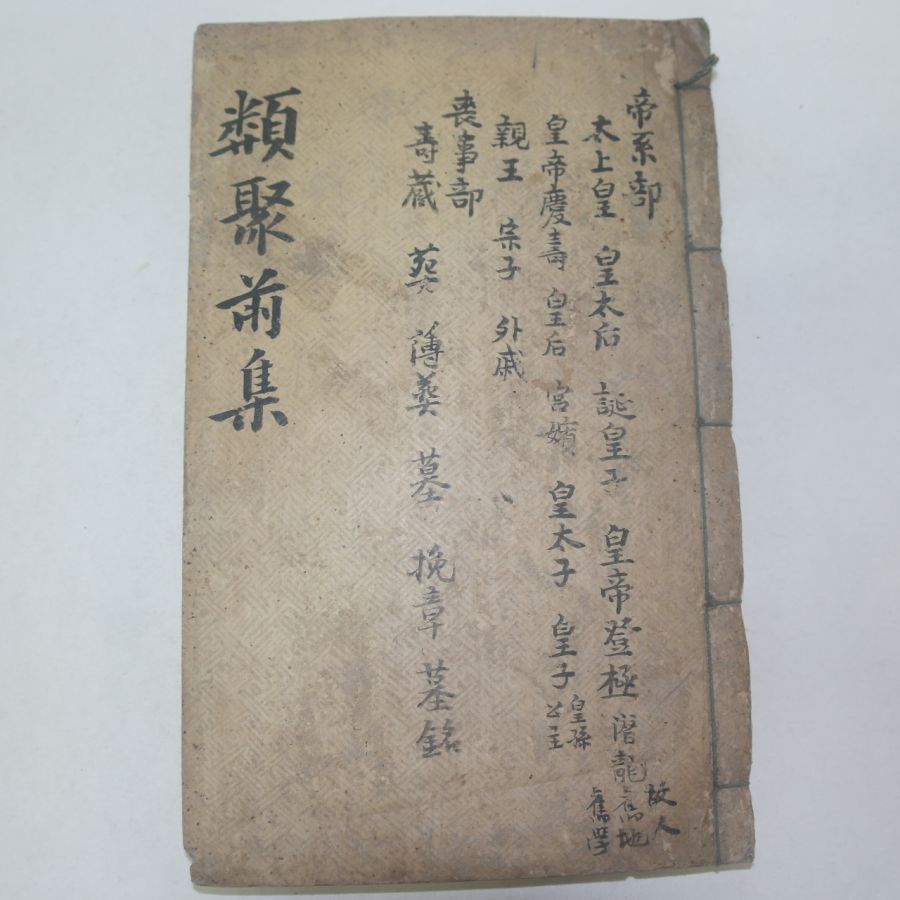 類聚前集
帝系部
太上皇 皇太后 誕皇子 皇帝登極 潛龍 故人 舊地 舊學
皇帝慶壽 皇后 宮嬪 皇太子 皇子 皇孫 公主
親王 宗子 外戚
喪事部
壽藏 葬 薄葬 墓 挽章 墓銘